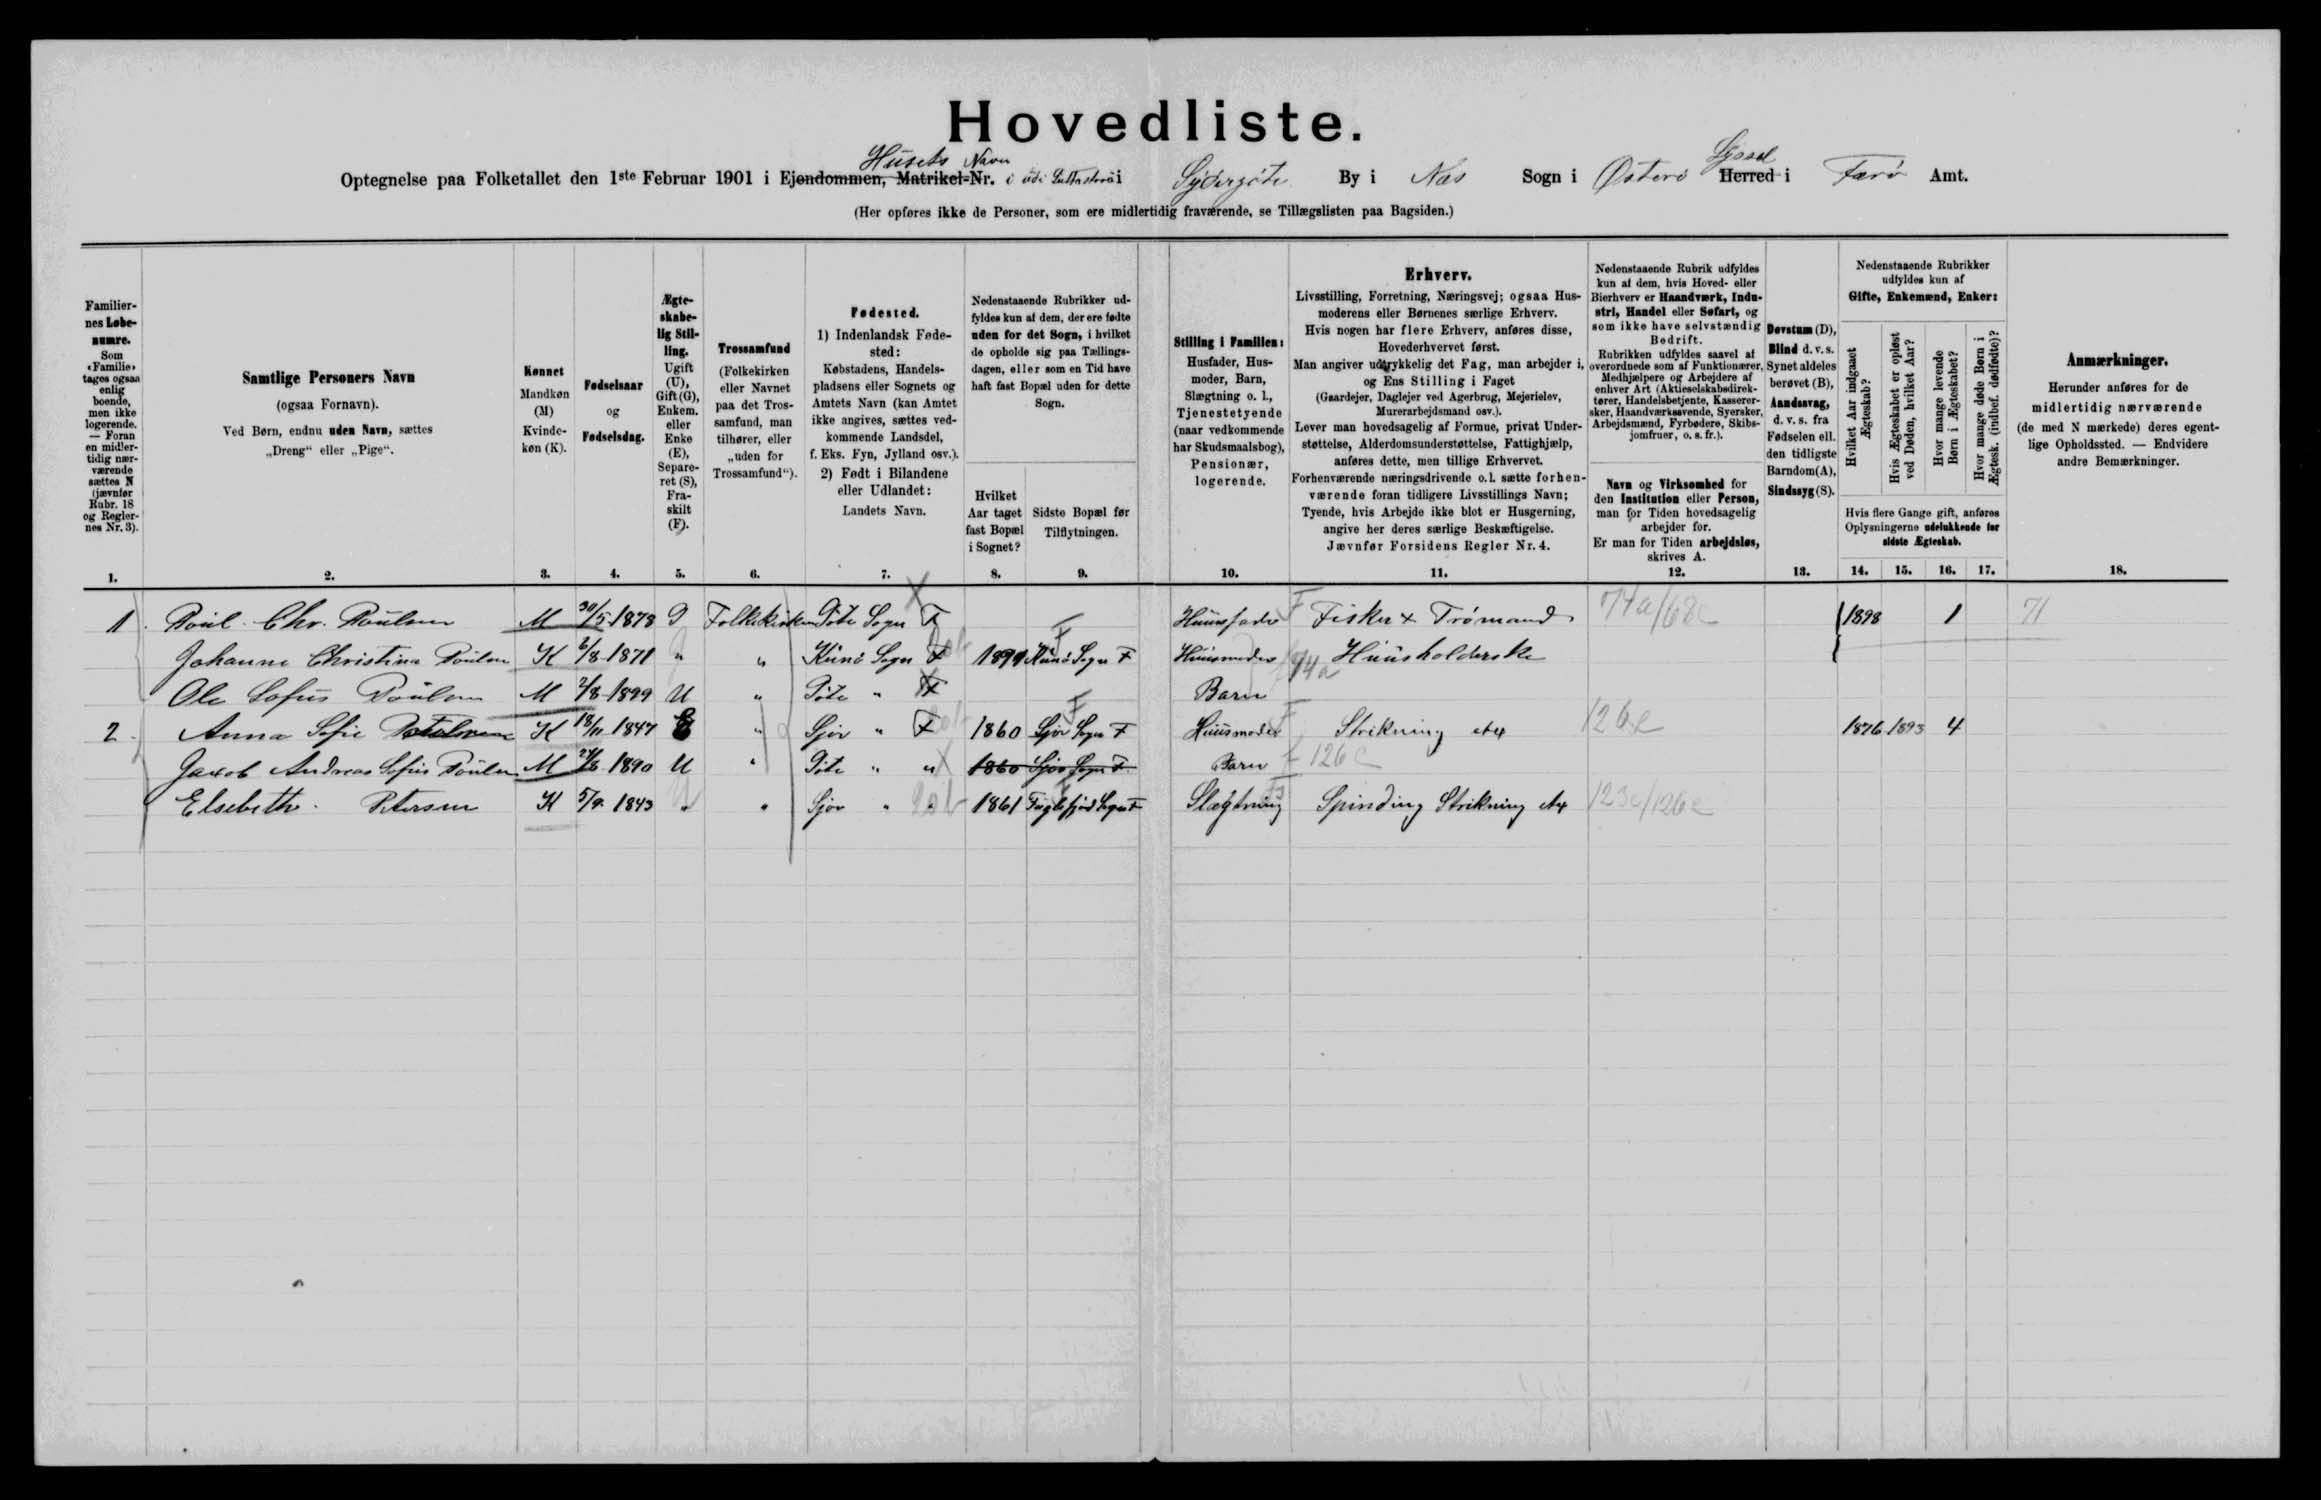 Hovedliste.
Husets Navn
Syssel
Optegnelse paa Folketallet den 1ste Februar 1901 i Ejendommen, Matrikel-Nr. i i Sydergöte By i Nas Sogn i Österö Herred i Færö Amt.
(Her opføres ikke de Personer, som ere midlertidig fraværende, se Tillægslisten paa Bagsiden.)
Familier-
nes Løbe-
numre.
Som
«Familie»
tages ogsaa
enlig
boende,
men ikke
logerende.
— Foran
en midler-
tidig nær-
værende
sættes N
(jævnfør
Rubr. 18
og Regler-
nes Nr. 3).
1.
Samtlige Personers Navn
(ogsaa Fornavn).
Ved Børn, endnu uden Navn, sættes
„Dreng“ eller „Pige“.
2.
Kønnet
Mandkøn
(M)
Kvinde-
køn (K).
3.
Fødselsaar
og
Fødselsdag.
4.
Ægte-
skabe-
lig Stil-
ling.
Ugift
(U),
Gift (G),
Enkem.
eller
Enke
(E),
Separe-
ret (S),
Fra-
skilt
(F).
5.
Trossamfund
(Folkekirken
eller Navnet
paa det Tros-
samfund, man
tilhører, eller
„uden for
Trossamfund“).
6.
Fødested.
1) Indenlandsk Føde-
sted:
Købstadens, Handels-
pladsens eller Sognets og
Amtets Navn (kan Amtet
ikke angives, sættes ved-
kommende Landsdel,
f. Eks. Fyn, Jylland osv.).
2) Født i Bilandene
eller Udlandet:
Landets Navn.
7.
Nedenstaaende Rubrikker ud-
fyldes kun af dem, der ere fødte
uden for det Sogn, i hvilket
de opholde sig paa Tællings-
dagen, eller som en Tid have
haft fast Bopæl uden for dette
Sogn.
Hvilket
Aar taget
fast Bopæl
i Sognet?
8.
Sidste Bopæl før
Tilflytningen.
9.
Stilling i Familien:
Husfader, Hus-
moder, Barn,
Slægtning o. l.,
Tjenestetyende
(naar vedkommende
har Skudsmaalsbog),
Pensionær,
logerende.
10.
Erhverv.
Livsstilling, Forretning, Næringsvej; ogsaa Hus-
moderens eller Børnenes særlige Erhverv.
Hvis nogen har flere Erhverv, anføres disse,
Hovederhvervet først.
Man angiver udtrykkelig det Fag, man arbejder i,
og Ens Stilling i Faget
(Gaardejer, Daglejer ved Agerbrug, Mejerielev,
Murerarbejdsmand osv.).
Lever man hovedsagelig af Formue, privat Under-
støttelse, Alderdomsunderstøttelse, Fattighjælp,
anføres dette, men tillige Erhvervet.
Forhenværende næringsdrivende o.l. sætte forhen-
værende foran tidligere Livsstillings Navn;
Tyende, hvis Arbejde ikke blot er Husgerning,
angive her deres særlige Beskæftigelse.
Jævnfør Forsidens Regler Nr. 4.
11.
Nedenstaaende Rubrik udfyldes
kun af dem, hvis Hoved- eller
Bierhverv er Haandværk, Indu-
stri, Handel eller Søfart, og
som ikke have selvstændig
Bedrift.
Rubrikken udfyldes saavel af
overordnede som af Funktionærer,
Medhjælpere og Arbejdere af
enhver Art (Aktieselskabsdirek-
tører, Handelsbetjente, Kasserer-
sker, Haandværkssvende, Syersker,
Arbejdsmænd, Fyrbødere, Skibs-
jomfruer, o. s. fr.).
Navn og Virksomhed for
den Institution eller Person,
man for Tiden hovedsagelig
arbejder for.
Er man for Tiden arbejdsløs,
skrives A.
12.
Døvstum (D),
Blind d. v. s.
Synet aldeles
berøvet (B),
Aandssvag,
d. v. s. fra
Fødselen ell.
den tidligste
Barndom(A),
Sindssyg (S).
13.
Nedenstaaende Rubrikker
udfyldes kun af
Gifte, Enkemænd, Enker:
Hvilket Aar indgaaet
Ægteskab?
Hvis Ægteskabet er opløst
ved Døden, hvilket Aar?
Hvor mange levende
Børn i Ægteskabet?
Hvor mange døde Børn i
Ægtesk. (indbef. dødfødte)?
Hvis flere Gange gift, anføres
Oplysningerne udelukkende for
sidste Ægteskab.
14. 15. 16. 17.
Anmærkninger.
Herunder anføres for de
midlertidig nærværende
(de med N mærkede) deres egent-
lige Opholdssted. — Endvidere
andre Bemærkninger.
18.
1 Poul Chr. Poulsen M 30/5 1878 G Folkekirken Göte Sogn F Huusfader F Fisker + Trömand 74a/68c 1898 1 71
Johanne Christina Poulsen K 6/8 1871 „ „ Kunö Sogn F Kunö Sogn F Huusmoder 74a Huusholderske
Ole Sofus Poulsen M 2/8 1899 U „ Göte „ F Barn
2 Anna Sofie Poulsen K 18/11 1847 E „ Sjov „ F 1860 Sjov Sogn F Huusmoder F Strikning etc 126c 1876 1893 4
Jacob Andreas Sofus Poulsen M 1890 U „ Göte „ „ 1860 Sjov Sogn F Barn f 126c
Elsebeth Petersen K 5/9 1843 „ „ Sjov „ „ 1861 Fuglefjord Sogn F Slægtning Spinding Strikning etc 123c/126c